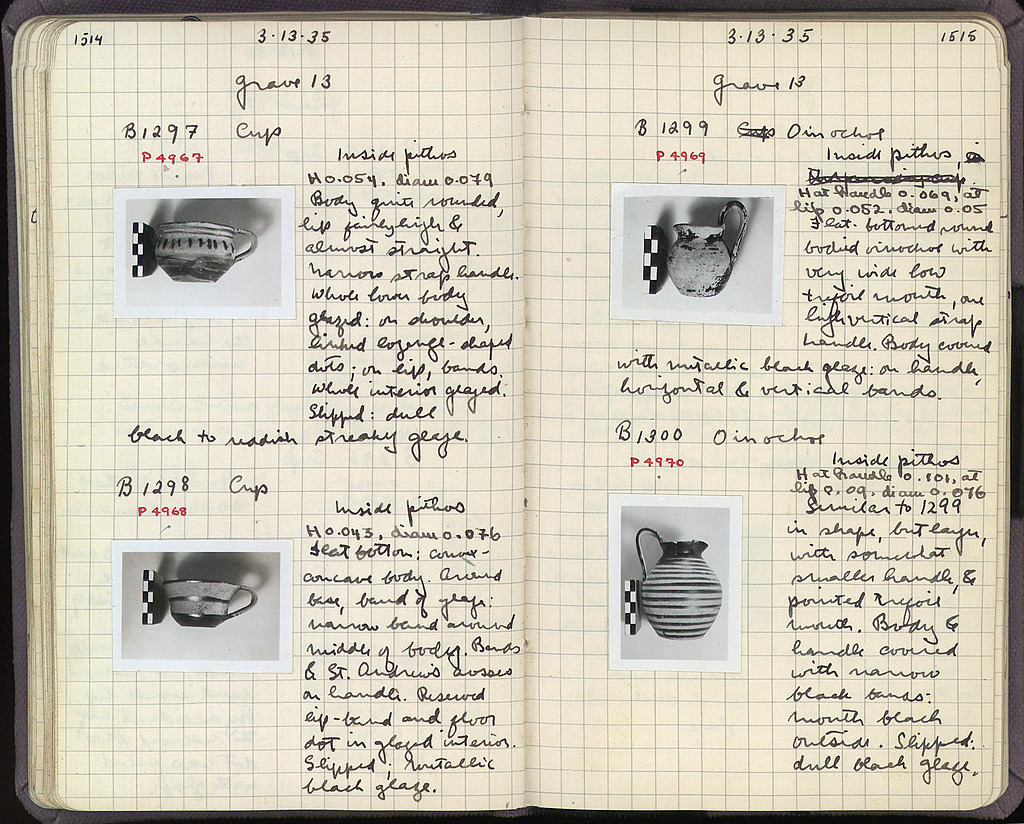 1514
3·13·35
grave 13
B 1297 Cup
P 4967
Inside pithos
H 0.054, diam 0.079
Body quite rounded,
lip fairly high &
almost straight.
Narrow strap handle.
Whole lower body
glazed: on shoulder,
linked lozenge-shaped
dots; on lip, bands.
Whole interior glazed.
Slipped: dull
black to reddish streaky glaze.
B 1298 Cup
P 4968
Inside pithos
H 0.043, diam 0.076
Flat bottom: convex-
concave body. Around
base, band of glaze:
narrow band around
middle of body. Bands
& St. Andrew's crosses
on handle. Reserved
lip-band and floor
dot in glazed interior.
Slipped; metallic
black glaze.
3·13·35
1515
grave 13
B 1299 Cup Oinochoe
P 4969
Inside pithos,
H at handle 0.069, at
lip 0.052, diam 0.05
Flat-bottomed round
bodied oinochoe with
very wide low
trefoil mouth, one
high vertical strap
handle. Body covered
with metallic black glaze: on handle,
horizontal & vertical bands.
B 1300 Oinochoe
P 4970
Inside pithos
H at handle 0.101, at
lip 0.09, diam 0.076
Similar to 1299
in shape, but larger,
with somewhat
smaller handle, &
pointed trefoil
mouth. Body &
handle covered
with narrow
black bands:
mouth black
outside. Slipped:
dull black glaze.